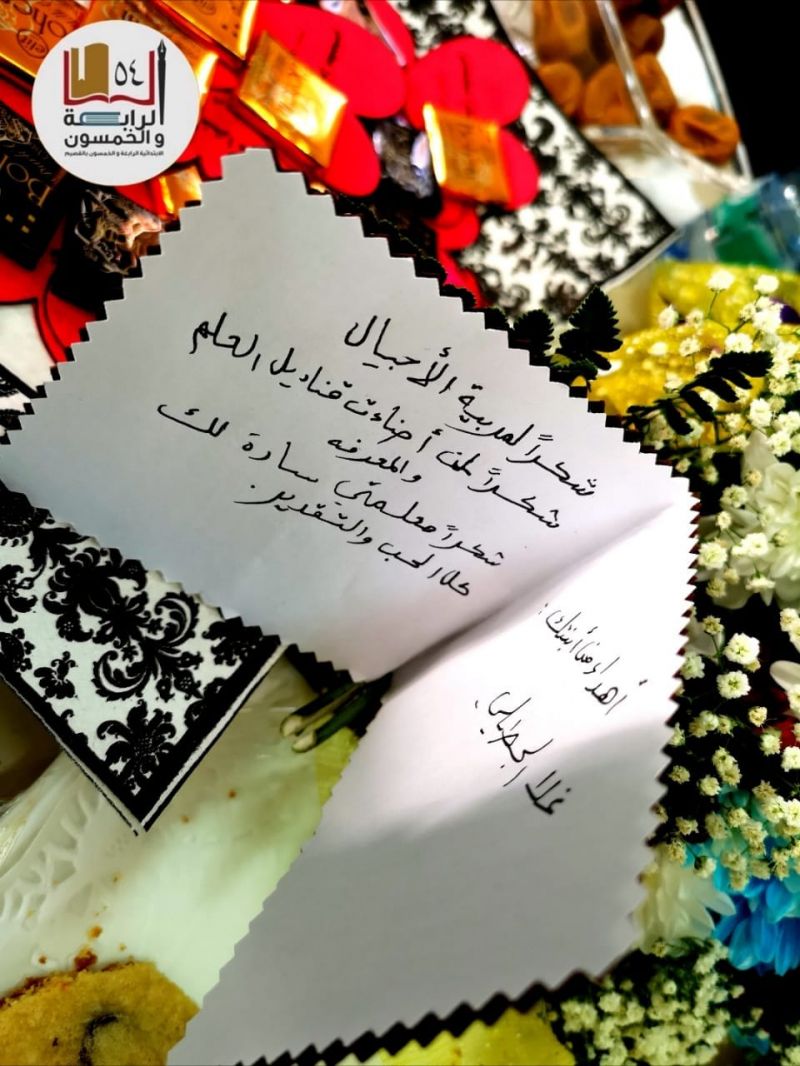 ٥٤
الرابعة
والخمسون
الابتدائية الرابعة و الخمسون بالقصيم
شكراً لمربية الأجيال
شكراً لمن أضاءت قناديل العلم
والمعرفه
شكراً معلمتي سارة لك
كل الحب والتقدير.
اهداء من أبنتك: